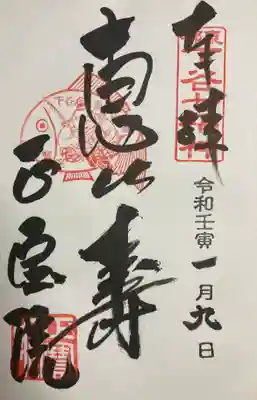 奉拝
令和壬寅一月九日
恵比寿
正宝院